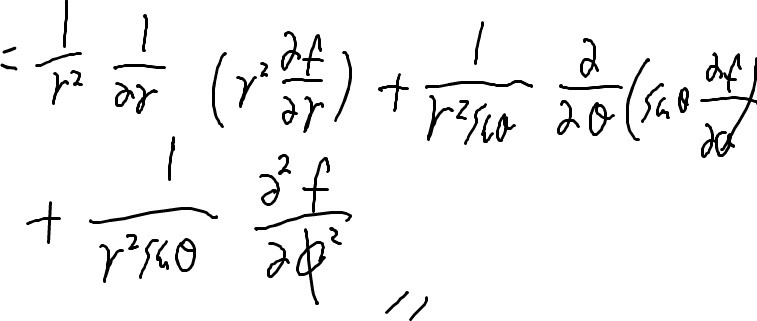 = \frac{1}{r^2} \frac{1}{\partial r} \left( r^2 \frac{\partial f}{\partial r} \right) + \frac{1}{r^2 \sin\theta} \frac{\partial}{\partial \theta} \left( \sin\theta \frac{\partial f}{\partial \theta} \right)
+ \frac{1}{r^2 \sin\theta} \frac{\partial^2 f}{\partial \phi^2} //